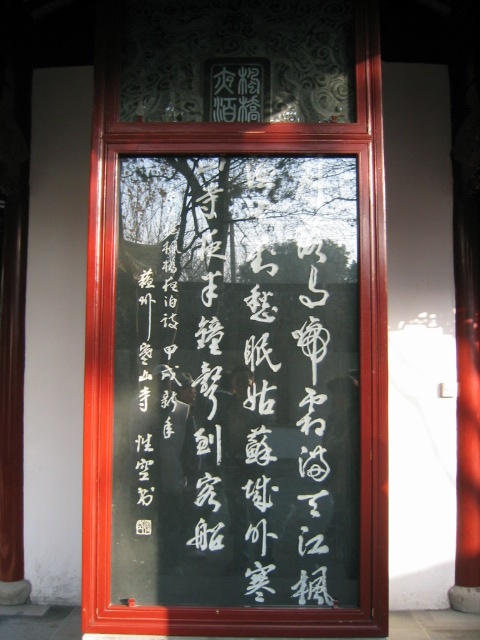 楓橋
夜泊
月落烏啼霜滿天江楓
漁火對愁眠姑蘇城外寒
山寺夜半鐘聲到客船
楓橋夜泊詩 甲戌新年
蘇州寒山寺 性空书